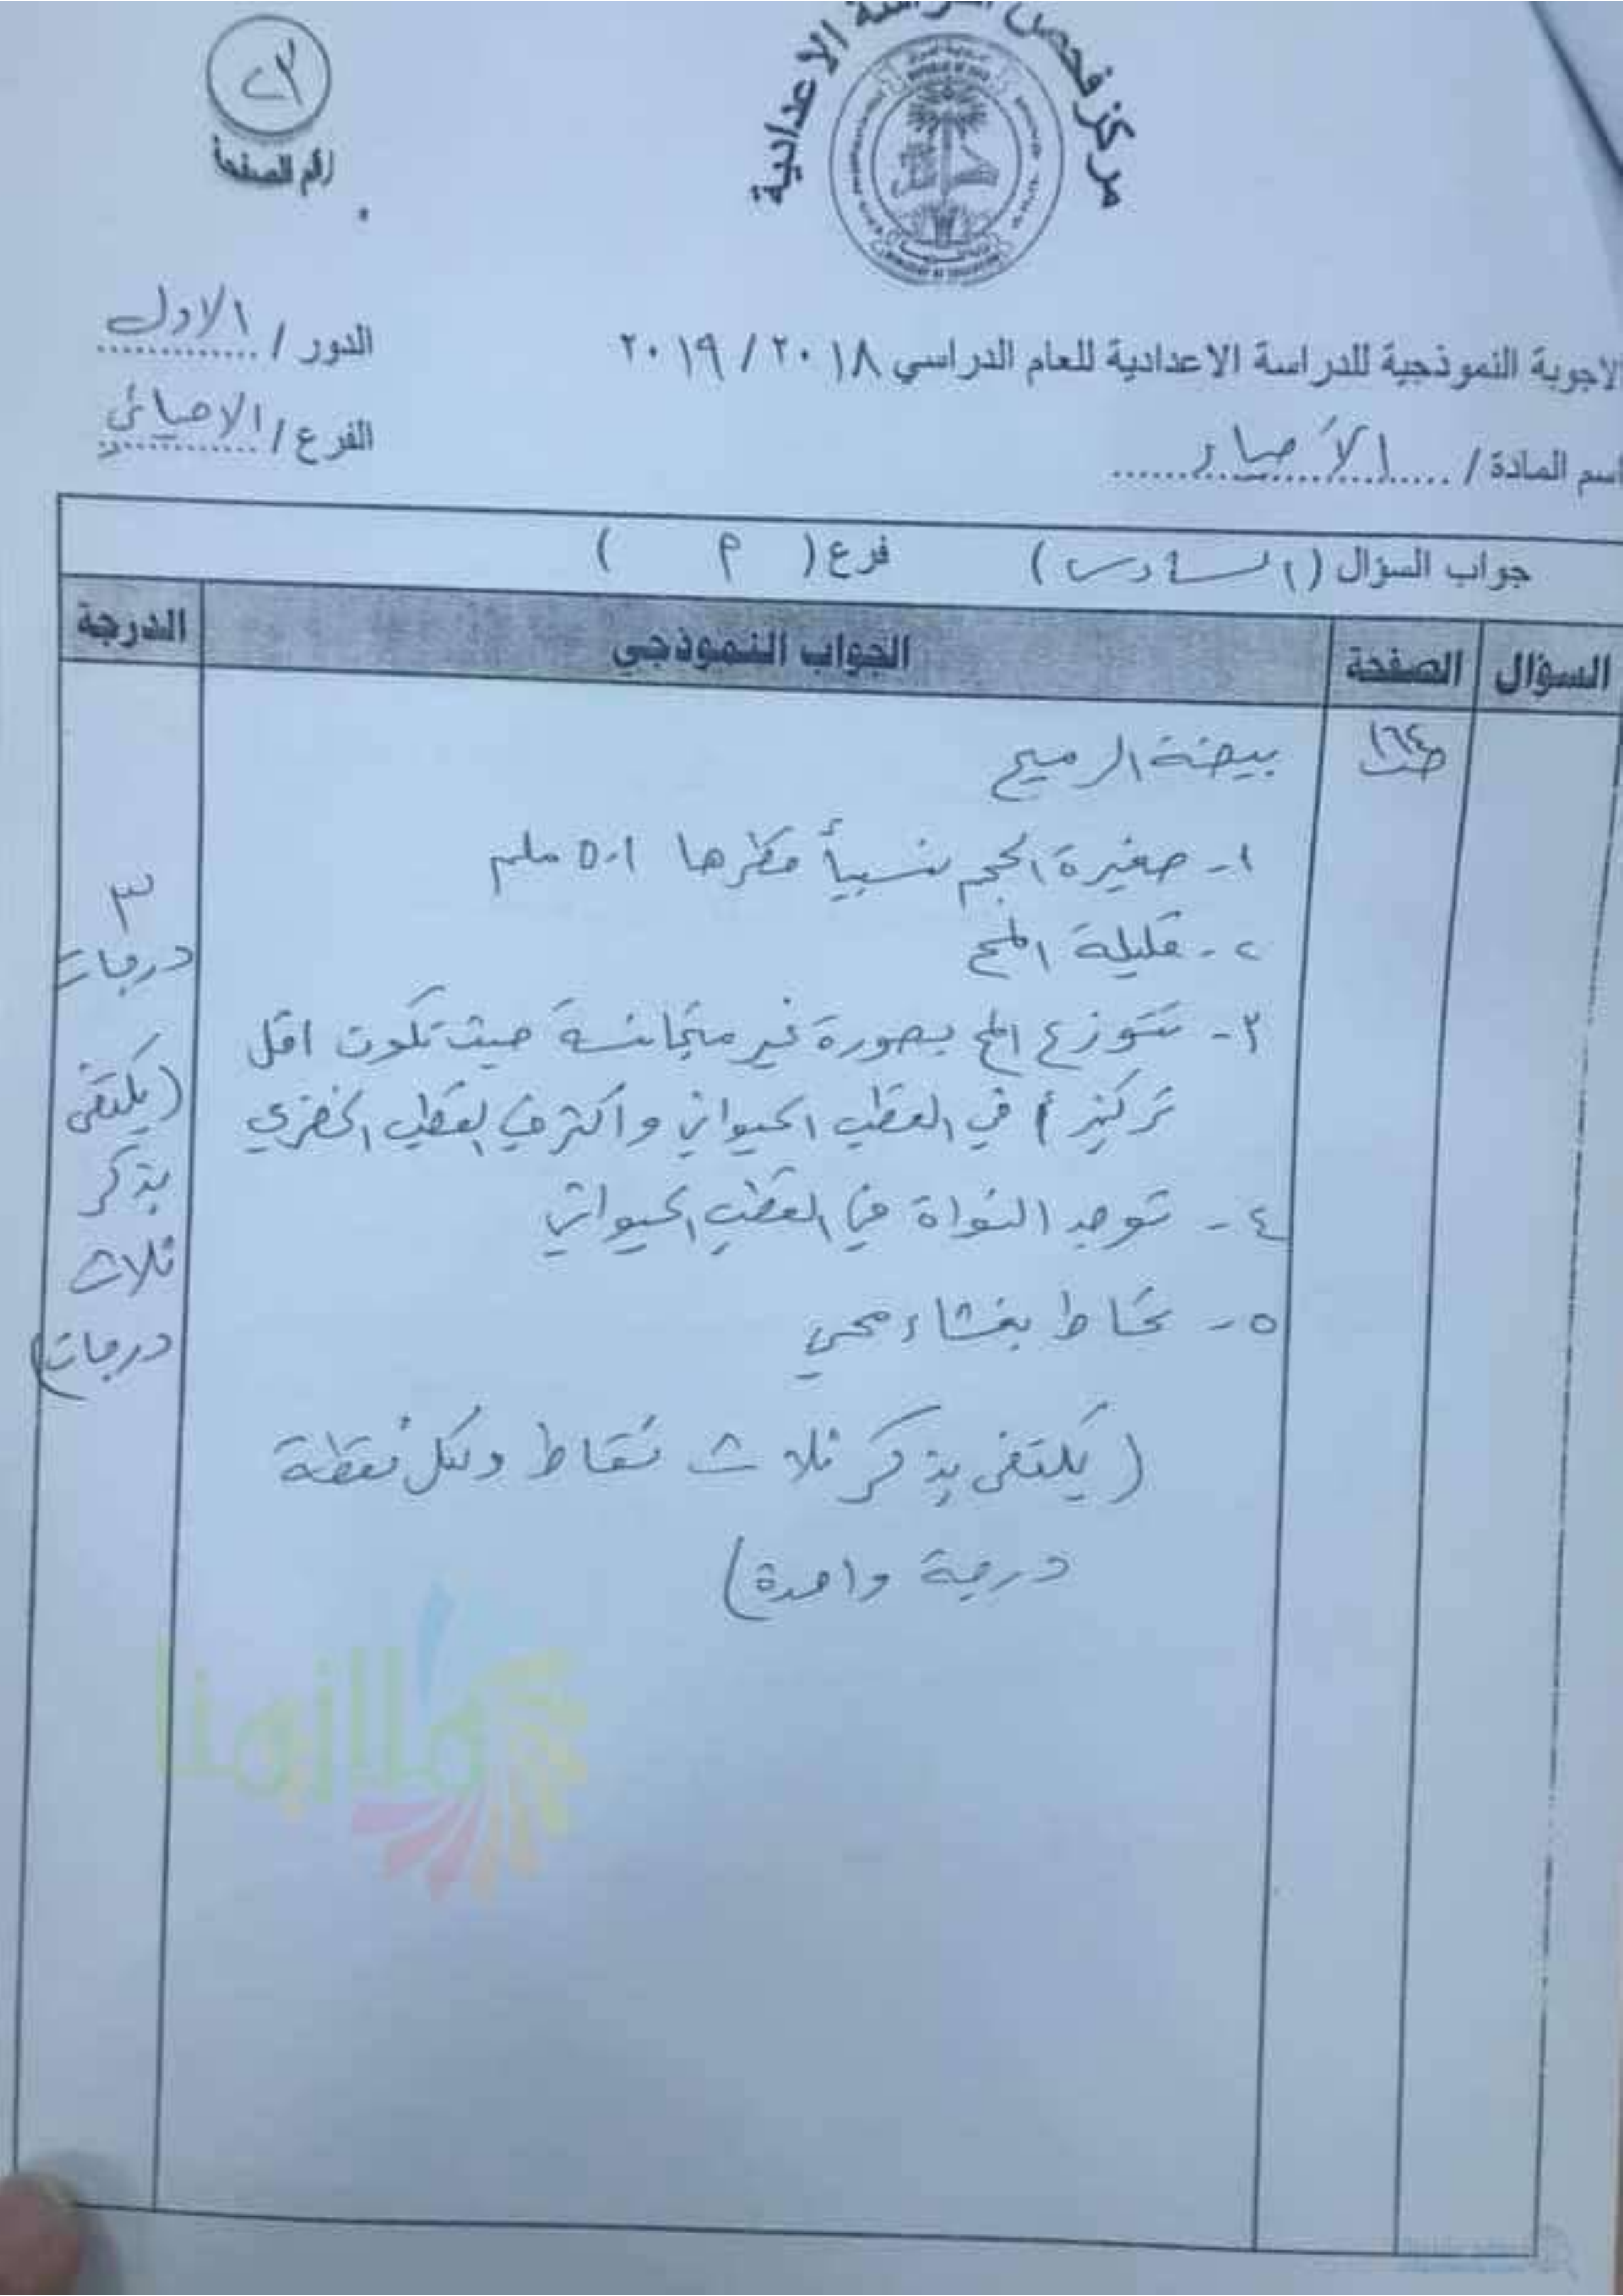 ٢٣
رقم الصفحة
مركز فحص الدراسة الاعدادية
الاجوبة النموذجية للدراسة الاعدادية للعام الدراسي ٢٠١٨ / ٢٠١٩
الدور / الاول
اسم المادة / الأحياء
الفرع / الاحيائي
جواب السؤال ( السادس ) فرع ( م )
السؤال الصفحة الجواب النموذجي الدرجة
ص١٦٤
بيضة الرميح
١- صغيرة الحجم نسبياً قطرها ٠.١ ملم
٢- قليلة المح
٣- تتوزع المح بصورة غير متجانسة حيث تكون اقل
تركيزاً في القطب الحيواني واكثر في القطب الخضري
٤- توجد النواة في القطب الحيواني
٥- تحاط بغشاء محي
(يكتفى بذكر ثلاث نقاط ولكل نقطة
درجة واحدة)
٣
درجات
(يكتفى
بذكر
ثلاث
درجات)
ملازمنا